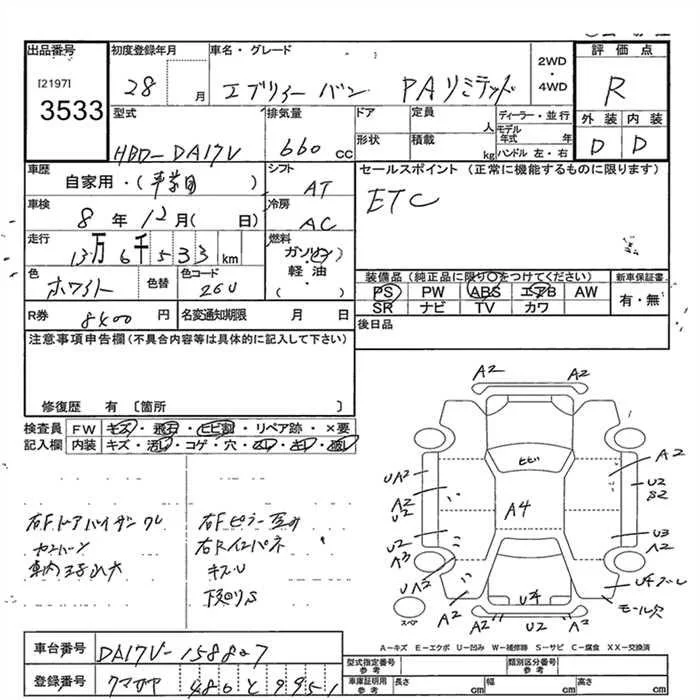 出品番号 初度登録年月 車名・グレード 評価点
[2197]
3533
28 月 エブリィー バン PAリミテッド
2WD
・
4WD
R
型式 排気量 ドア 定員 人 ディーラー・並行 外装 内装
HBD-DA17V 660 CC 形状 積載 kg モデル年式 年 ハンドル 左・右 D D
車歴 自家用・( ) シフト AT セールスポイント (正常に機能するものに限ります)
ETC
車検 8年 12月( 日) 冷房 AC
走行 13万 6千 533 km 燃料 ガソリン
軽・油
( )
色 ホワイト 色替 色コード 26U
装備品 (純正品に限り○をつけてください) 新車保証書
PS PW ABS エアB AW 有・無
SR ナビ TV カワ
R券 8400 円 名変通知期限 月 日 後日品
注意事項申告欄 (不具合内容等は具体的に記入して下さい)
修復歴 有 〔箇所 〕
検査員 FW キズ・飛石・ヒビ割・リペア跡・×要
記入欄 内装 キズ・汚れ・コゲ・穴・スレ・キレ・
A2 A2
ヒビ
A4
UA2
A2
U2
U2
A3
UA2
A2
A2
U2
S2
U3
A2
U4
A2 A2 U2 A2
モール穴
スペア
右Fドアバイザーワレ
右Fピラー
キズU
下回りS
A-キズ E-エクボ U-凹み W-補修跡 S-サビ C-腐食 XX-交換済
車台番号 DA17V-158827
型式指定番号 参考 類別区分番号 参考
登録番号 クマガヤ 480 と 9951
車庫証明用 参考 長さ cm 幅 cm 高さ cm